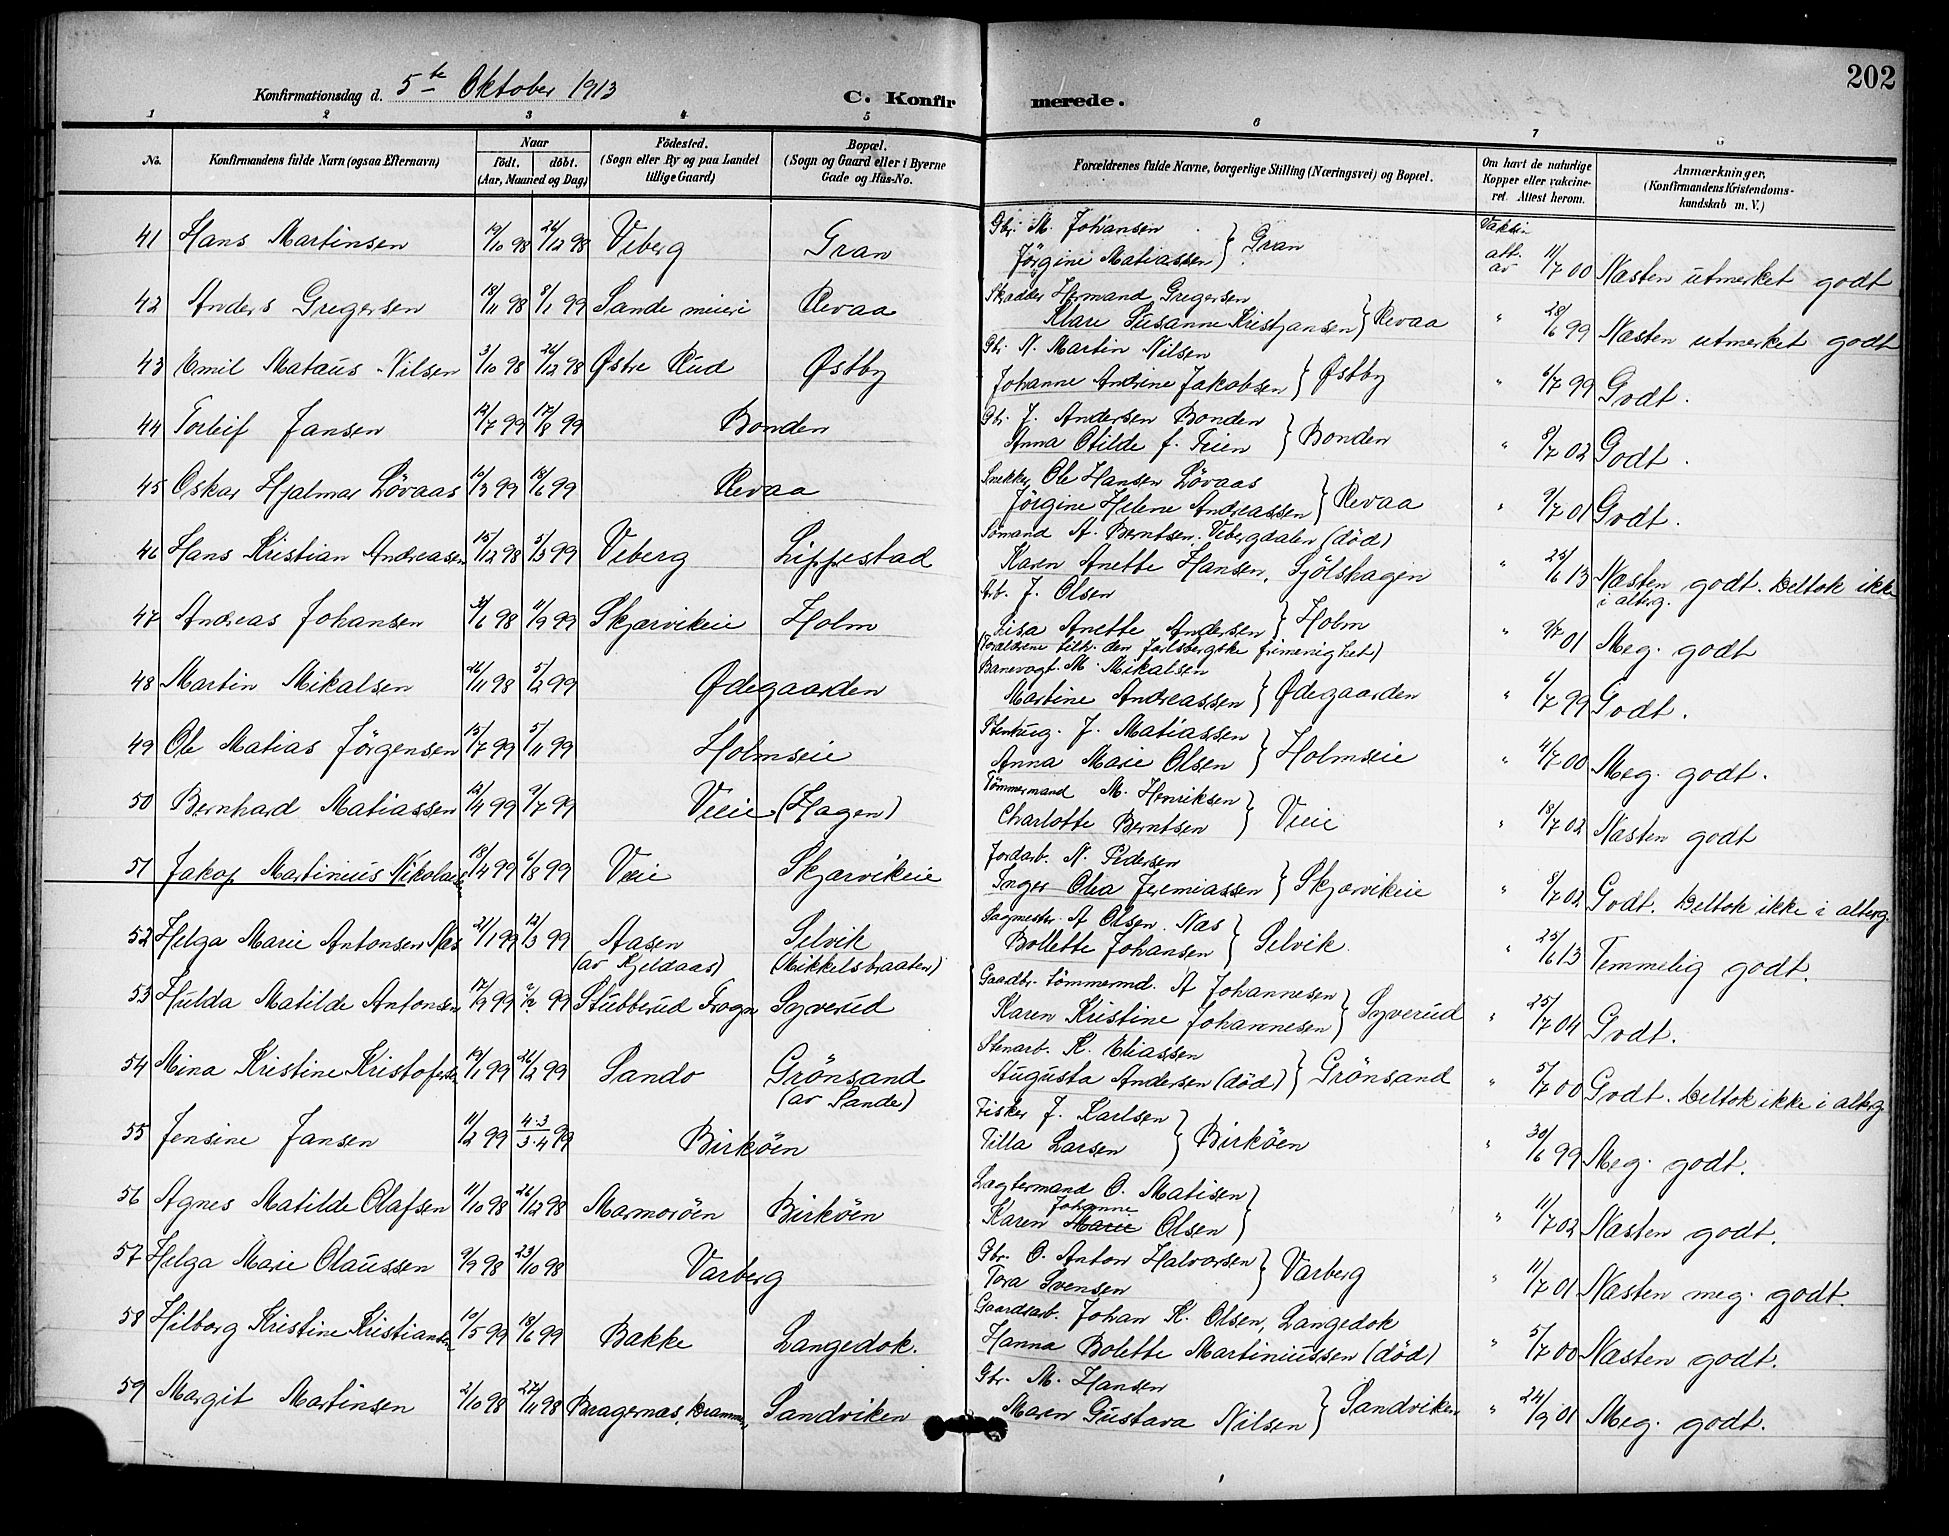 202
Konfirmationsdag d. 5te Oktober 1913 C. Konfirmerede.
1 2 3 4 5 6 7 8
No. Konfirmandens fulde Navn (ogsaa Efternavn) Naar födt. döbt. (Aar, Maaned og Dag) Födested. (Sogn eller By og paa Landet tillige Gaard) Bopæl. (Sogn og Gaard eller i Byerne Gade og Hus-No. Forældrenes fulde Navne, borgerlige Stilling (Næringsvei) og Bopæl. Om havt de naturlige Kopper eller vakcineret. Attest herom. Anmærkninger, (Konfirmandens Kristendomskundskab m. V.)
41 Hans Martinsen 19/10 98 26/12 98 Viberg Gran Gbr. M. Johansen
Jörgine Matiassen } Gran Vakci. att. av 11/7 00 Næsten utmerket godt
42 Anders Gregersen 18/11 98 8/1 99 Sande meieri Revaa Skrædder Hermand Gregersen
Klare Susanne Kristjansen } Revaa " 28/6 99 Næsten utmerket godt
43 Emil Mataus Nilsen 3/10 98 26/12 98 Østre Rud Østby Gbr. N. Martin Nilsen
Johanne Andrine Jakobsen } Østby " 6/7 99 Godt.
44 Torleif Jansen 12/7 99 17/8 99 Bonden Gbr. J. Andersen Bonden
Anna Otilde f. Feien } Bonden " 8/7 02 Godt.
45 Oskar Hjalmar Lövaas 10/3 99 18/6 99 Revaa Snekker Ole Hansen Lövaas
Jörgine Helene Andreassen } Revaa " 9/7 01 Godt.
46 Hans Kristian Andreasen 15/12 98 5/3 99 Viberg Lippestad Sömand A. Berntsen. Vibergdalen (död)
Karen Anette Hansen, Sjölshagen " 25/6 13 Næsten godt. Deltok ikke
i alterg.
47 Andreas Johansen 30/6 98 11/9 99 Skjærvikeie Holm Arb. J. Olsen
Lisa Anette Andersen } Holm " 9/7 01 Meg. godt
(Forældrene tilh. den Jarlsbergske frimenighet)
48 Martin Mikalsen 26/11 98 5/2 99 Ødegaarden Banevogt. M. Mikalsen
Martine Andreassen } Ødegaarden " 6/7 99 Godt.
49 Ole Matias Jörgensen 15/7 99 5/11 99 Holmseie Stenhug. J. Matiassen
Anna Marie Olsen } Holmseie " 4/7 00 Meg. godt.
50 Bernhard Matiassen 12/4 99 9/7 99 Veieie (Hagen) Tömmermand M. Henriksen
Charlotte Berntsen } Veieie " 18/7 02 Næsten godt
51 Jakop Martinius Nikolaisen 18/4 99 6/8 99 Veieie Skjærvikeie Jordarb. N. Pedersen
Inger Olea Jeremiassen } Skjærvikeie " 8/7 02 Godt. Deltok ikke i alterg.
52 Helga Marie Antonsen Næs 21/1 99 12/3 99 Aasen Selvik Sagmester. A. Olsen. Næs
(av Kjeldaas) (Mikkelsbraaten) Bollette Johansen } Selvik. " 25/6 13 Temmelig godt.
53 Hulda Matilde Antonsen 17/9 99 99 Stubberud Frogn Syverud Gaardbr. tömmermd. A Johannesen
Karen Kristine Johannesen } Syverud " 25/7 04 Godt.
54 Mina Kristine Kristofersen 19/1 99 26/2 99 Sando Grönsand Stenarb. K. Eliassen
(av Sande) Augusta Andersen (död) } Grönsand " 5/7 00 Godt. Deltok ikke i alterg.
55 Jensine Jansen 11/2 99 4.3/3.4 99 Birköen Fisker J. Karlsen
Tilla Larsen } Birköen " 30/6 99 Meg. godt.
56 Agnes Matilde Olafsen 11/10 98 26/12 98 Marmoröen Birköen Lægtermand O. Matisen
Johanne
Karen Marie Olsen } " 11/7 02 Næsten godt.
57 Helga Marie Olaussen 9/9 98 23/10 98 Varberg Gbr. O. Anton Halvorsen
Tora Svensen } Varberg " 11/7 01 Næsten meg. godt.
58 Hilborg Kristine Kristiansen 10/5 99 18/6 99 Bakke Langedok. Gaardsarb. Johan K. Olsen, Langedok
Hanna Bolette Martiniussen (död) " 5/7 00 Næsten godt.
59 Margit Martinsen 2/10 98 27/11 98 Bragernæs, Drammen Sandviken Gbr. M. Hansen
Maren Gustava Nilsen } Sandviken " 24/9 01 Meg. godt.